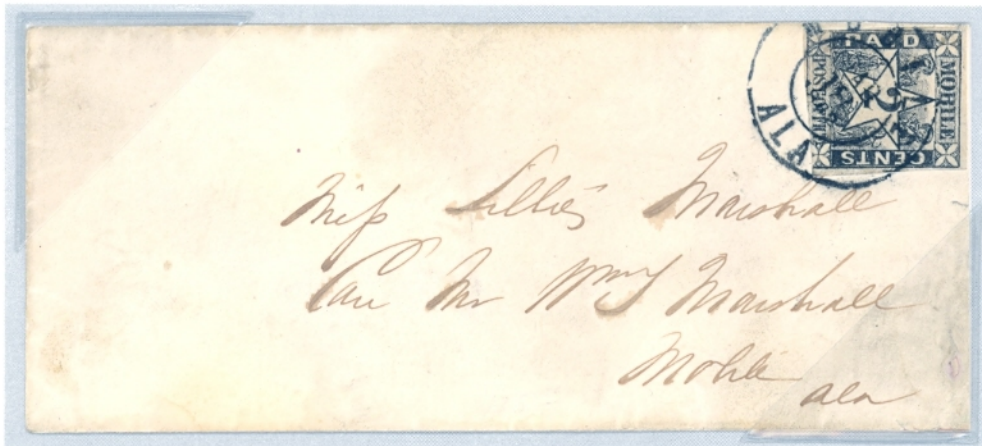 PAID
MOBILE
POST OFFICE
2
CENTS
ALA
Miss Lillies Marshall
Care Mr Wm J Marshall
Mobile
Ala